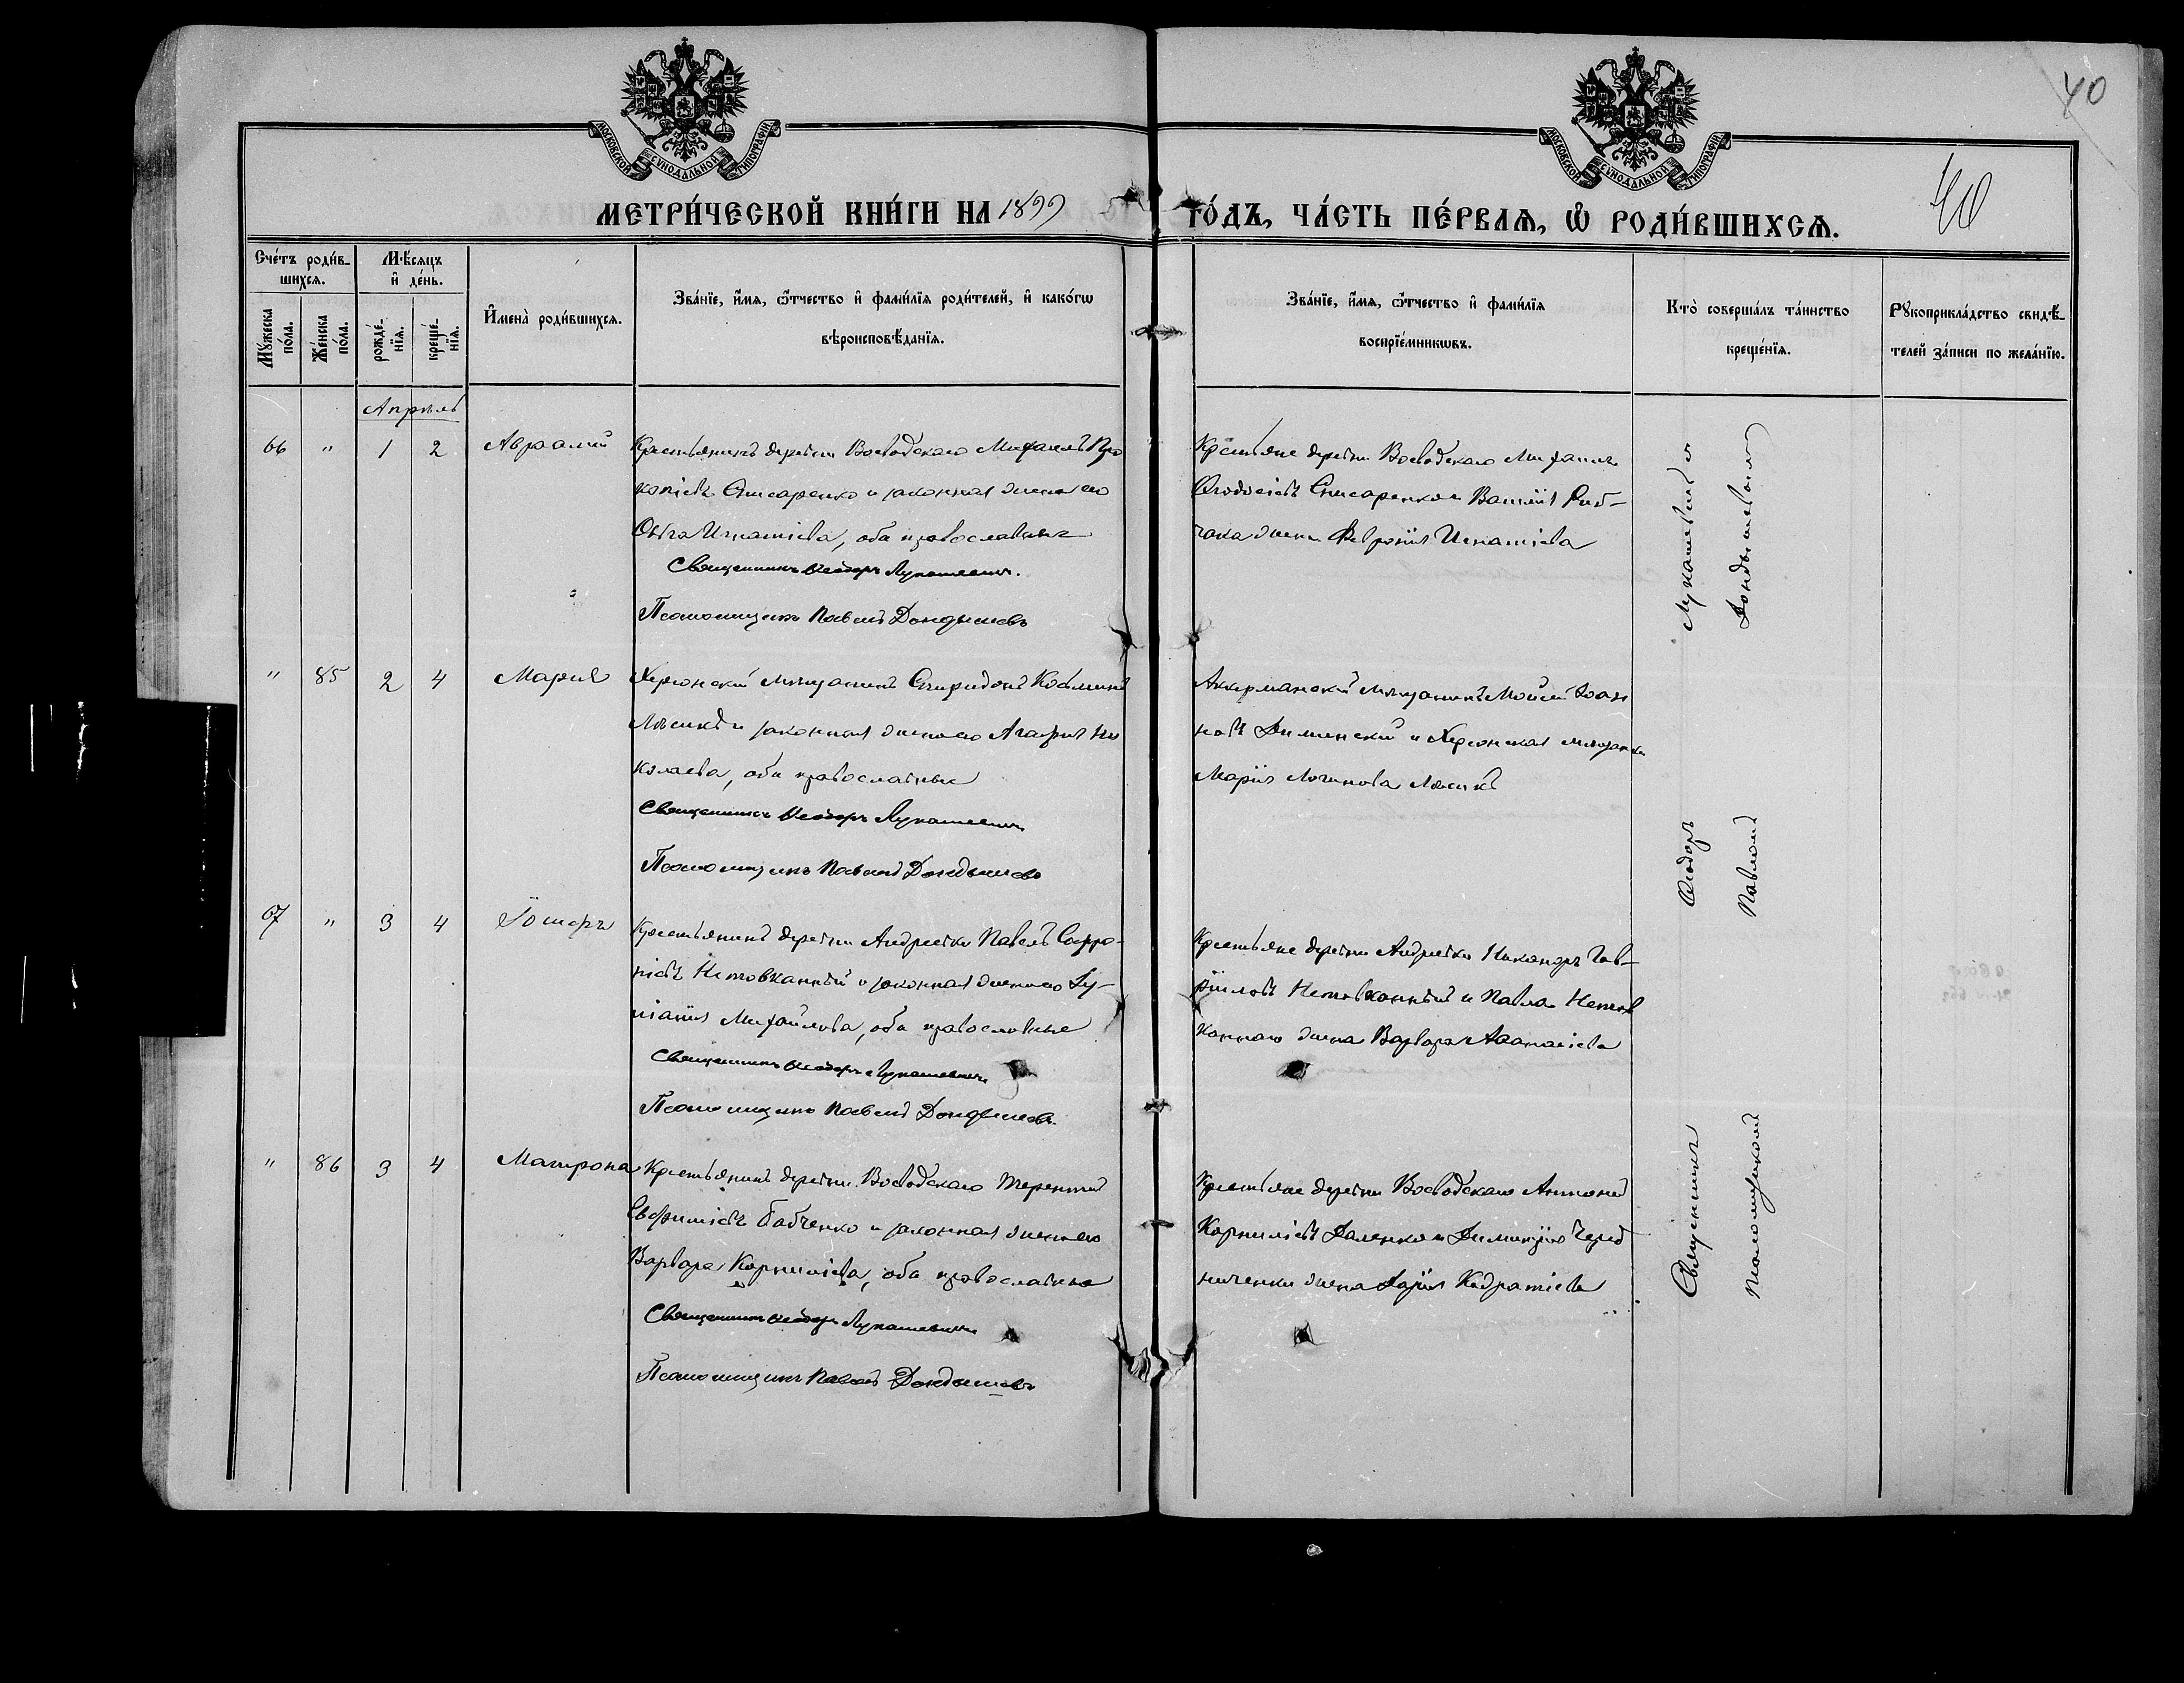 40
МОСКОВСКОЙ СѴНОДАЛЬНОЙ ТИПОГРАФІИ
МОСКОВСКОЙ СѴНОДАЛЬНОЙ ТИПОГРАФІИ
МЕТРИ́ЧЕСКОЙ КНИ́ГИ НА 1899 ГО́ДЪ, ЧА́СТЬ ПЕ́РВАѦ, Ѡ҆ РОДИ́ВШИХСѦ.
40
Сче́тъ роди́в-
шихсѧ.
Мꙋ́жеска по́ла.
Же́нска по́ла.
Мѣ́сѧцъ
и҆ де́нь.
рожде́-нїѧ.
креще́-нїѧ.
И҆мена̀ роди́вшихсѧ.
Зва́нїе, и҆́мѧ, ѻ҆́тчество и҆ фами́лїѧ роди́телей, и҆ како́гѡ
вѣроисповѣ́данїѧ.
Зва́нїе, и҆́мѧ, ѻ҆́тчество и҆ фами́лїѧ
воспрїе́мникѡвъ.
Кто̀ соверша́лъ та́инство
креще́нїѧ.
Рꙋкоприкла́дство свидѣ́-
телей за́писи по жела́нїю.
Апрѣль
66 " 1 2 Авраамій
Крестьянинъ деревни Воеводскаго Михаилъ Про
копіевъ Слисаренко и законная жена его
Ольга Игнатіева, оба православные
Священникъ Ѳеодоръ Лукашевичъ.
Псаломщикъ Павелъ Дондышевъ
Крестьяне деревни Воеводскаго Михаилъ
Ѳеодосіевъ Слисаренко и Василія Риб-
чака жена Февронія Игнатіева
" 85 2 4 Марія
Херсонскій мѣщанинъ Спиридонъ Козьминъ
и законная жена его Агафія Ни
колаева, оба православные
Священникъ Ѳеодоръ Лукашевичъ
Псаломщикъ Павелъ Дондышевъ
Аккерманскій мѣщанинъ Моисей Іоан
новъ и Херсонская мѣщанка
Марія Логинова
67 " 3 4 Іосифъ
Крестьянинъ деревни Андреевки Павелъ Софро-
ніевъ Нетовканный и законная жена его Іу-
ліанія Михайлова, оба православные
Священникъ Ѳеодоръ Лукашевичъ
Псаломщикъ Павелъ Дондышевъ.
Крестьяне деревни Андреевки Никаноръ Гав-
рііловъ Нетовканный и Павла Нетов
каннаго жена Варвара Аѳанасіева
" 86 3 4 Матрона
Крестьянинъ деревни Воеводскаго Терентій
Евфиміевъ Бабченко и законная жена его
Варвара Корниліева, оба православные
Священникъ Ѳеодоръ Лукашевичъ
Псаломщикъ Павелъ Дондышевъ
Крестьяне деревни Воеводскаго Антоній
Корниліевъ и Димитрія Черед
ниченки жена Дарія Кодратіева
Священникъ Ѳеодоръ Лукашевичъ и
Псаломщикомъ Павломъ Дондышевымъ